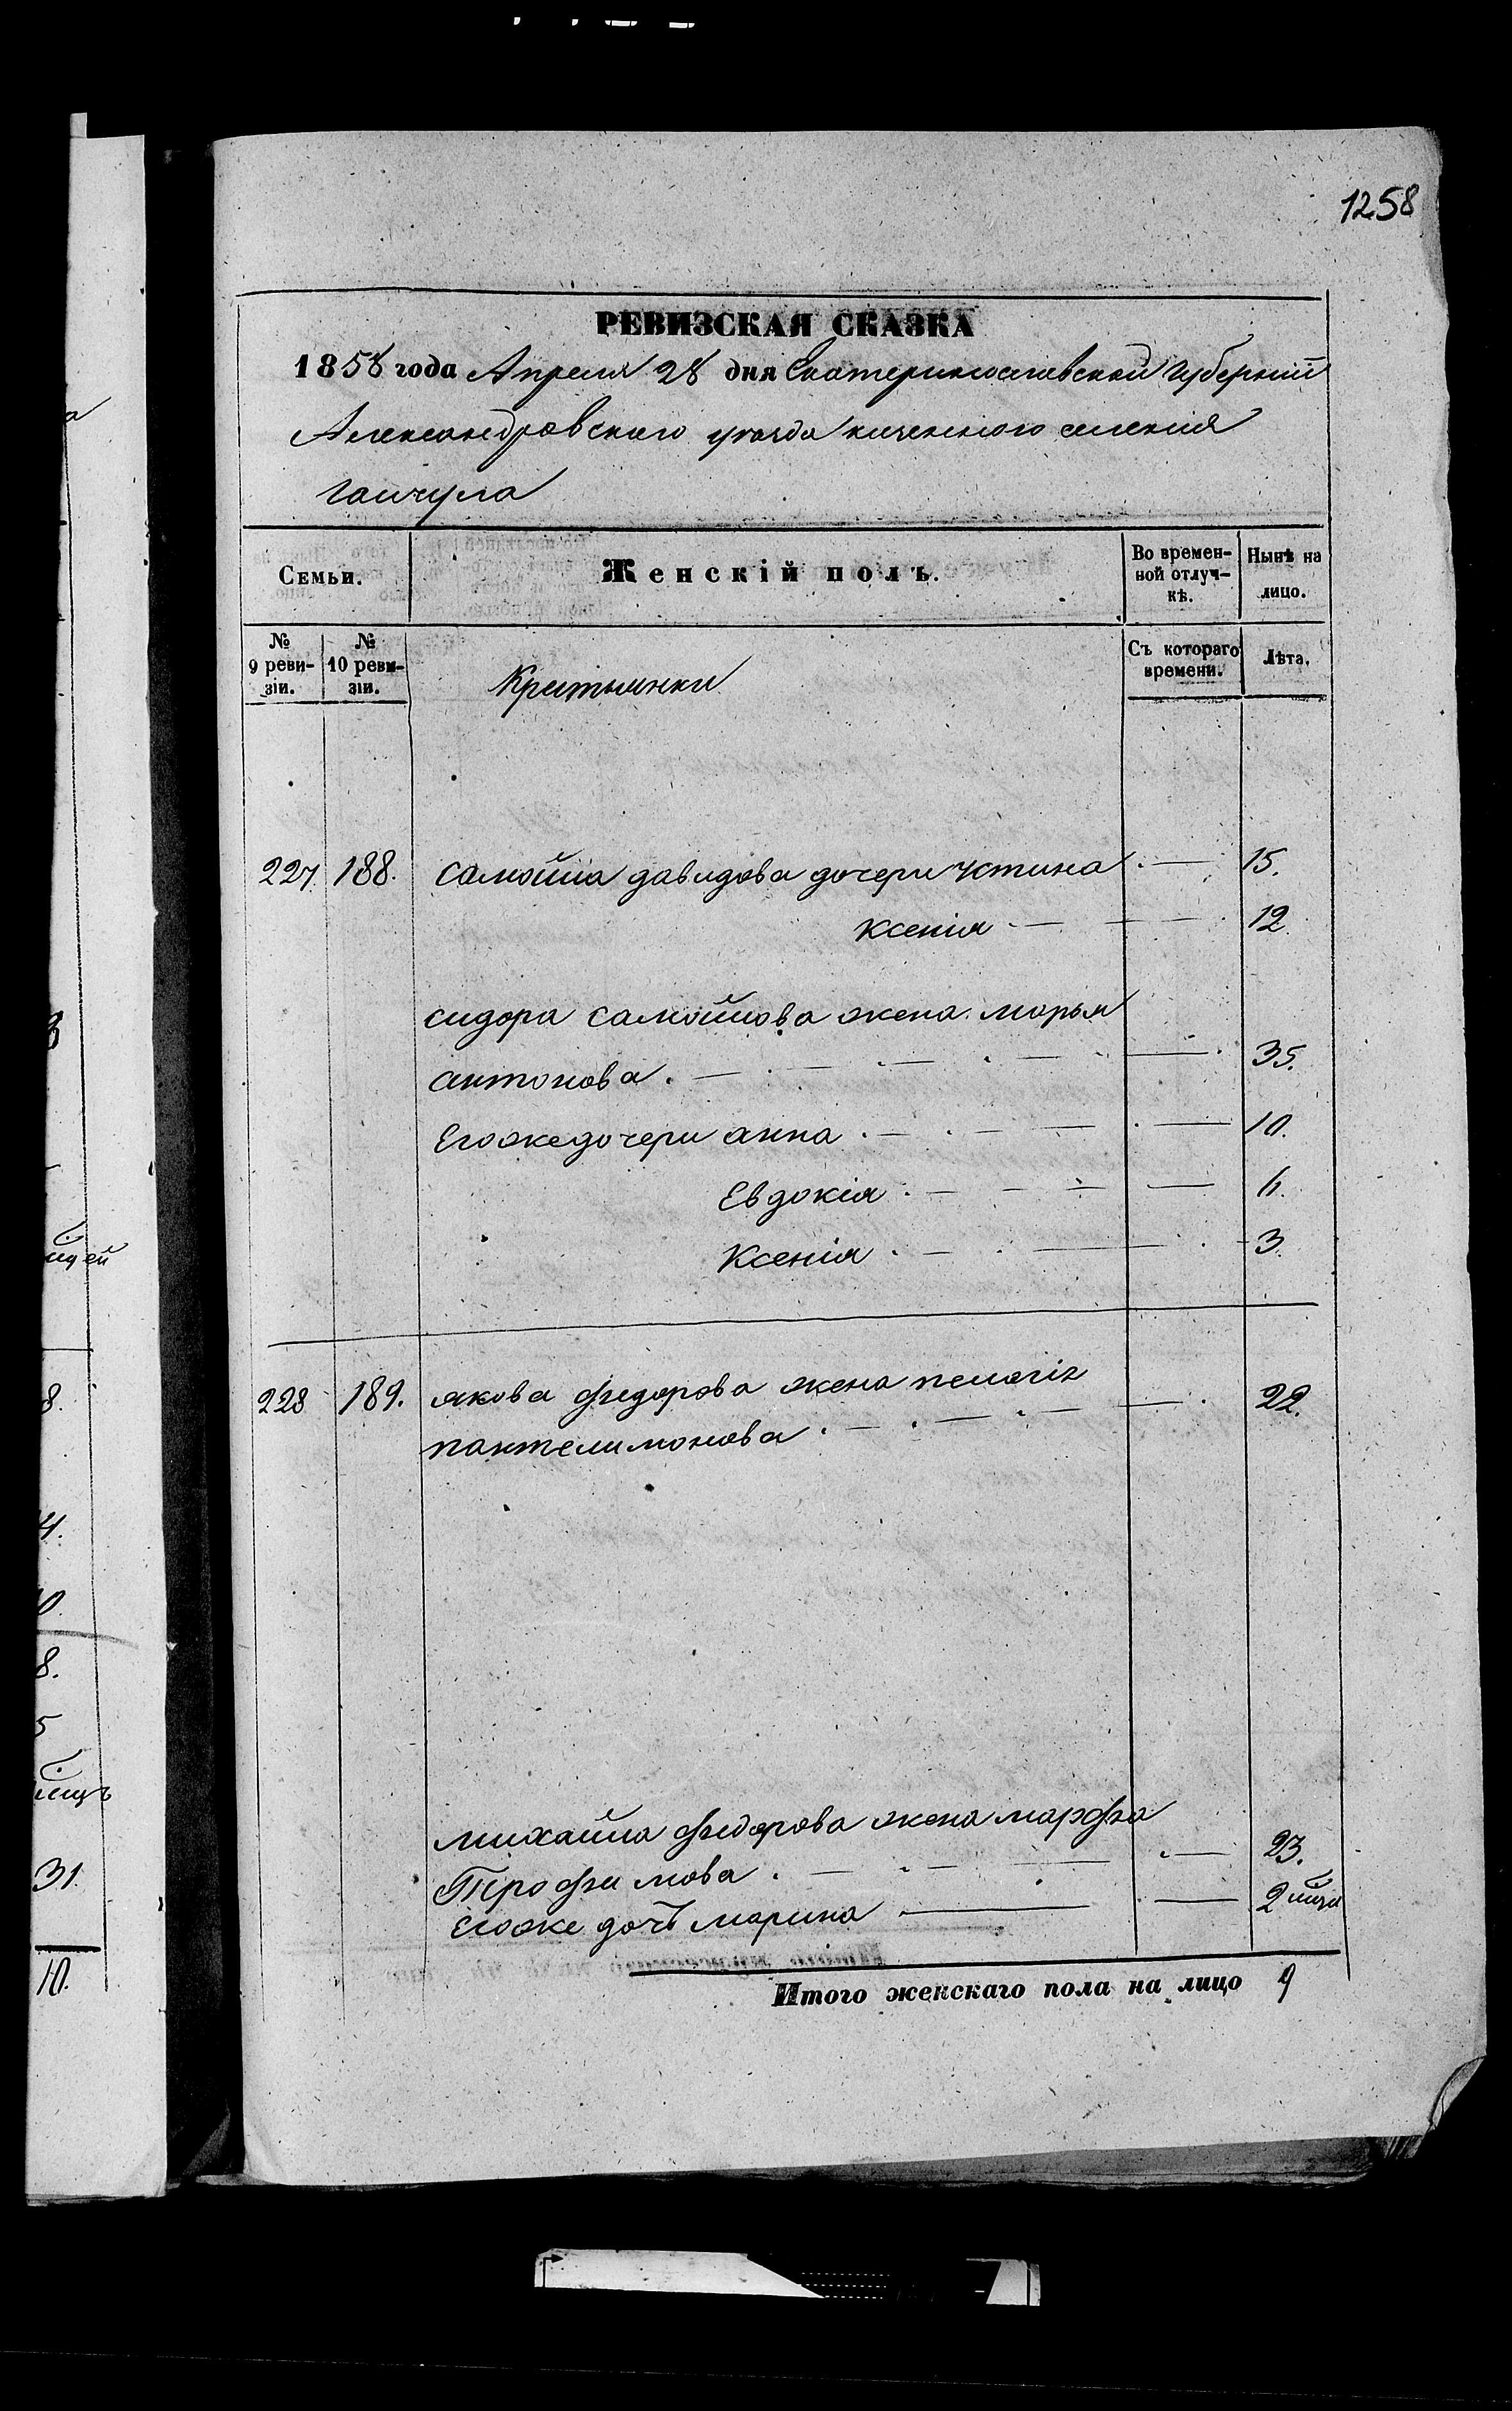 1258
РЕВИЗСКАЯ СКАЗКА
1858 года Апреля 28 дня Екатеринославской Губернии
Александровского уезда казенного селения
Гайчула
Семьи.
Женскій полъ.
Во времен-
ной отлуч-
кѣ.
Нынѣ на
лицо.
№
9 реви-
зіи.
№
10 реви-
зіи.
Крестьянки
Съ котораго
времени.
Лѣта.
227. 188. самойла давидова дочери Устина 15.
Ксенія 12
сидора самойлова жена марья
антонова. 35.
Егоже дочери анна 10.
Евдокія 6.
Ксенія 3.
228 189. якова федорова жена пелагія
пантелимонова 22.
михайла федорова жена марфа
Трофимова 23.
Егоже дочь марина 2
Итого женскаго пола на лицо 9
а
8.
31.
10.